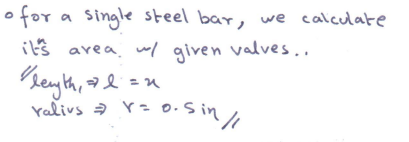 o for a single steel bar, we calculate
it's area. w/ given valves..
"length, ⇒ l = x
ralius ⇒ r = 0.5 in //